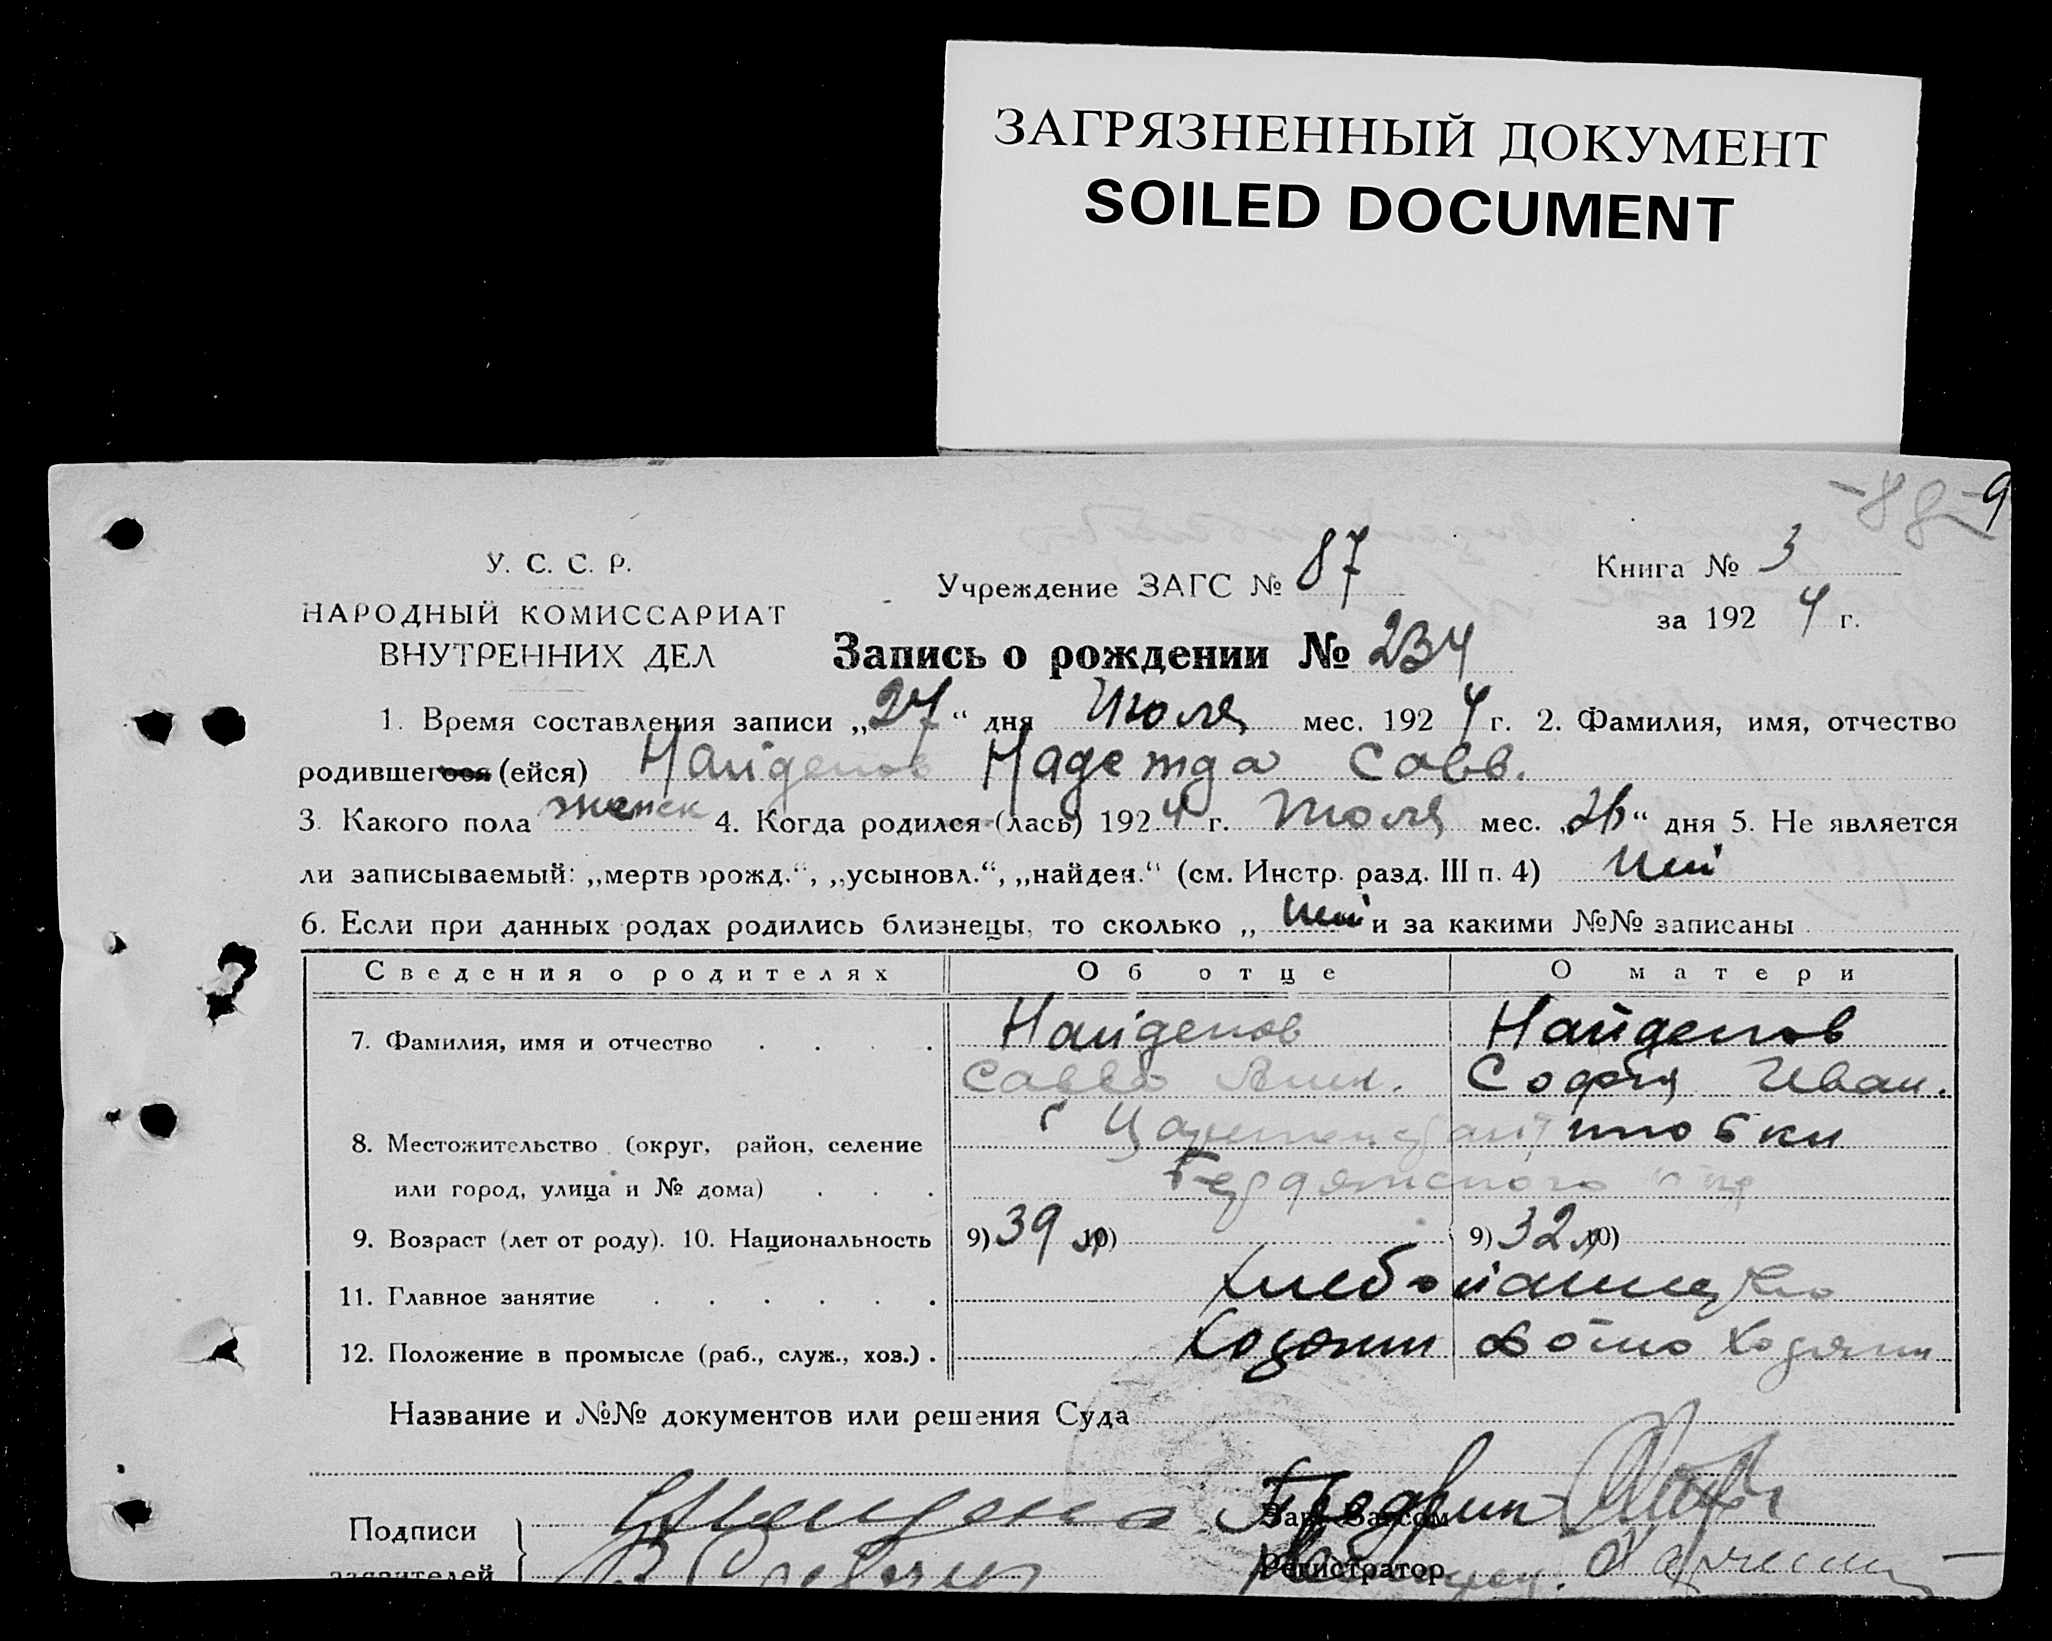 ЗАГРЯЗНЕННЫЙ ДОКУМЕНТ
SOILED DOCUMENT
У. С. С. Р.
НАРОДНЫЙ КОМИССАРИАТ
ВНУТРЕННИХ ДЕЛ
Учреждение ЗАГС № 87
Книга № 3
за 192 4 г.
Запись о рождении № 234
1. Время составления записи „27“ дня Июля мес. 192 4 г. 2. Фамилия, имя, отчество
родившегося (ейся) Найденов Надежда Савв.
3. Какого пола женск 4. Когда родился (лась) 192 4 г. Июля мес. „ “ дня 5. Не является
ли записываемый: „мертворожд.“, „усыновл.“, „найден.“ (см. Инстр. разд. III п. 4) Нет
6. Если при данных родах родились близнецы, то сколько „ Нет и за какими №№ записаны
Сведения о родителях Об отце О матери
7. Фамилия, имя и отчество . . . . Найденов Найденов
Савва София Иван.
8. Местожительство (округ, район, селение
или город, улица и № дома) . . . Бердянского
9. Возраст (лет от роду). 10. Национальность 9) 39 л 10) 9) 32 л 10)
11. Главное занятие . . . . . . Хлебопашество
12. Положение в промысле (раб., служ., хоз.) . Хозяин Домохозяин
Название и №№ документов или решения Суда
Подписи
заявителей
Зав. Загсом
Регистратор